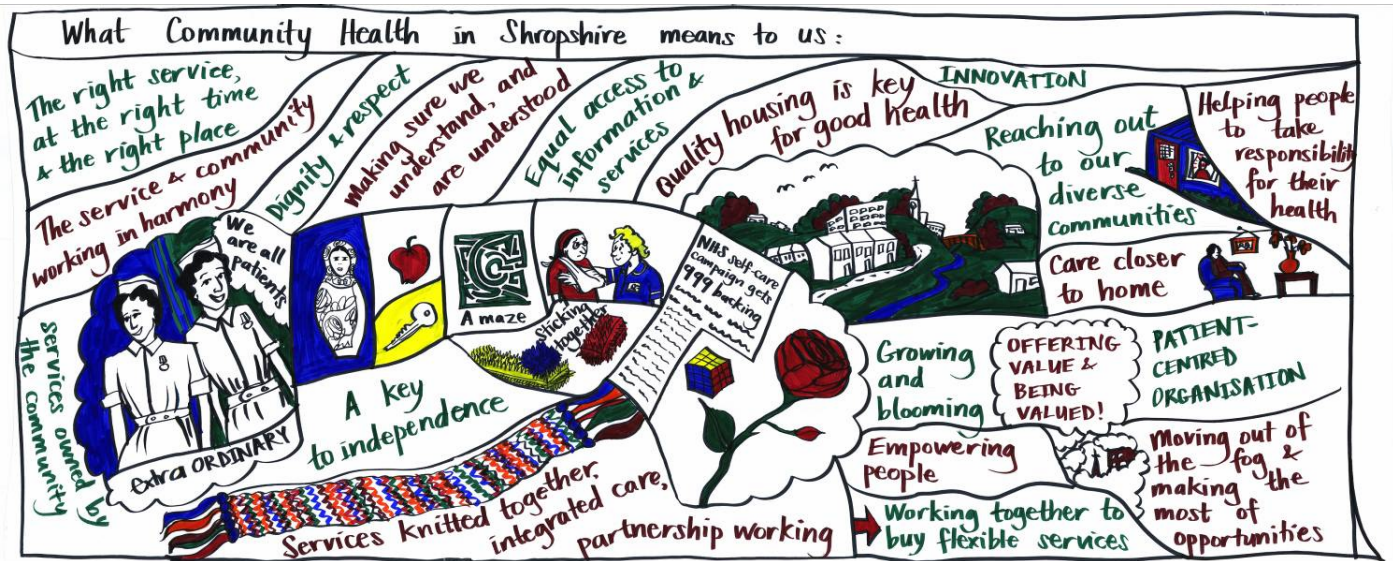 What Community Health in Shropshire means to us:
The right service,
at the right time
& the right place
The service & community
working in harmony
Dignity & respect
Making sure we
understand, and
are understood
Equal access to
information &
services
Quality housing is key
for good health
INNOVATION
Reaching out
to our
diverse
communities
Helping people
to take
responsibility
for their
health
We
are all
patients
services owned by
the community
extra ORDINARY
A maze
Sticking
together
A key
to independence
NHS self-care
campaign gets
999 backing
Care closer
to home
Growing
and
blooming
OFFERING
VALUE &
BEING
VALUED!
PATIENT-
CENTRED
ORGANISATION
Empowering
people
Moving out of
the fog &
making the
most of
opportunities
Services knitted together,
integrated care,
partnership working
Working together to
buy flexible services